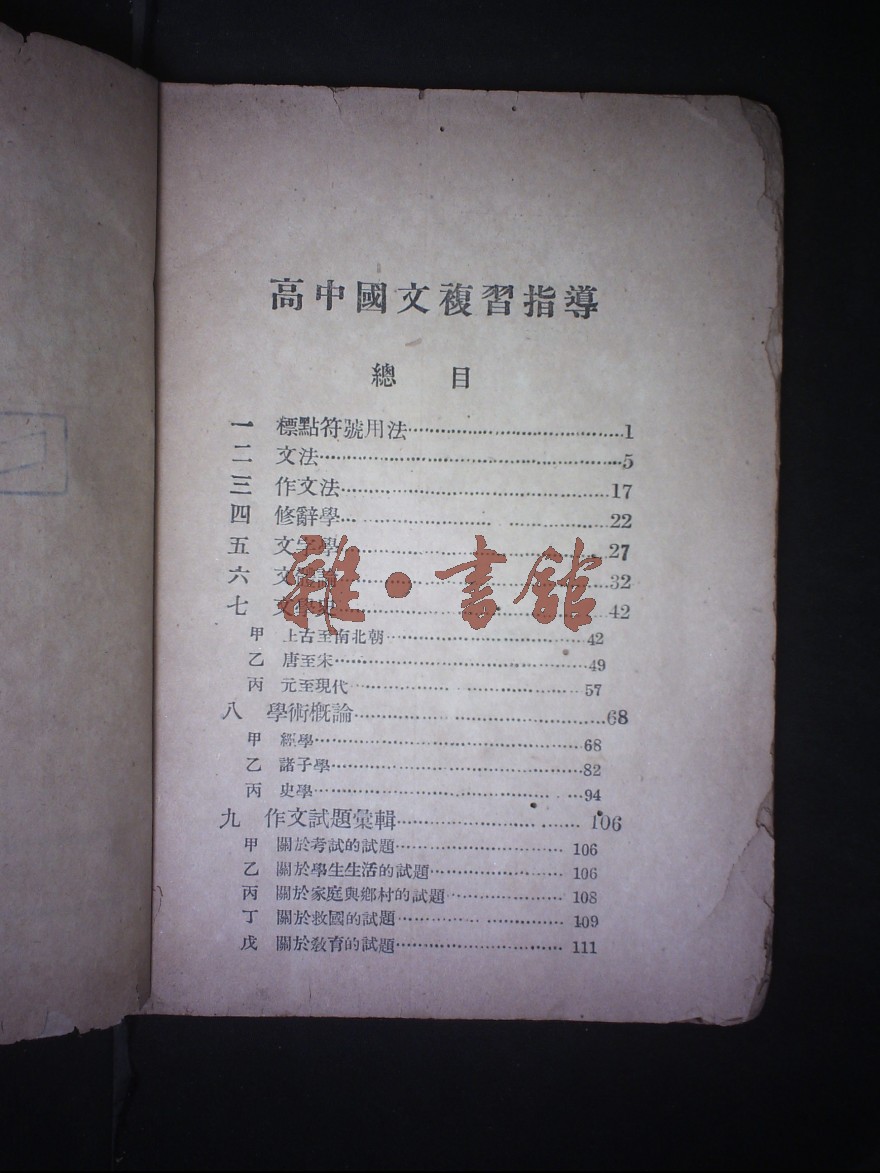 高中國文複習指導
總 目
一 標點符號用法……1
二 文法……5
三 作文法……17
四 修辭學……22
五 文字學……27
六 文體論……32
七 文學史……42
甲 上古至南北朝……42
乙 唐至宋……49
丙 元至現代……57
八 學術概論……68
甲 經學……68
乙 諸子學……82
丙 史學……94
九 作文試題彙輯……106
甲 關於考試的試題……106
乙 關於學生生活的試題……106
丙 關於家庭與鄉村的試題……108
丁 關於救國的試題……109
戊 關於教育的試題……111
雜·書館